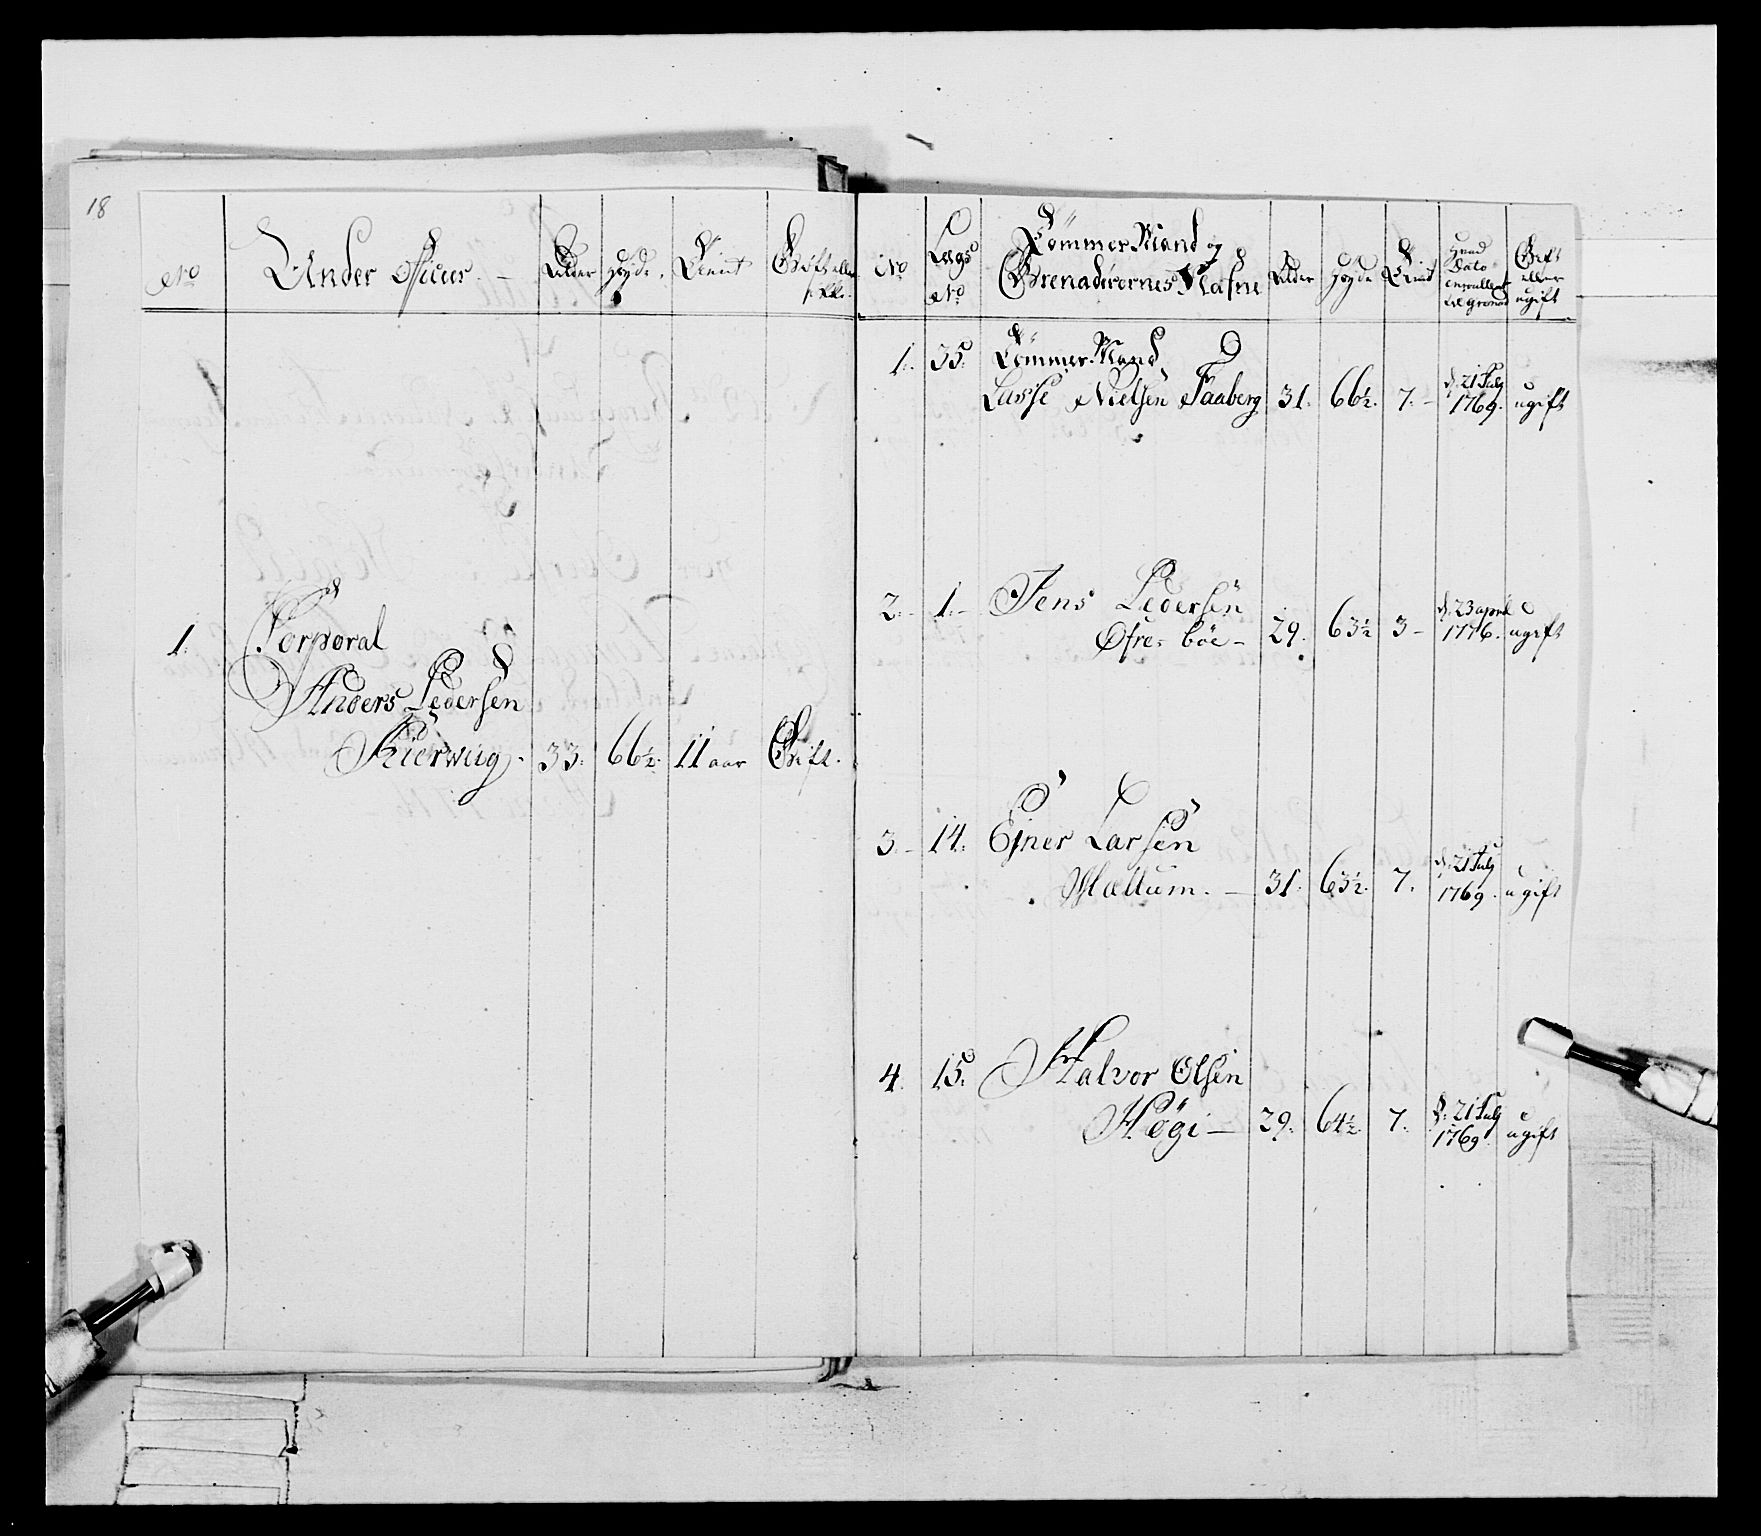 18
No
Under Officier. —
Alder
Høyde.
Tient
Gift eller
ikke.
1.
Corporal
Anders Pedersen
Kierwiig. 33. 66½. 11 aar Gift.
No
Lægs
No
Tømmer Mand og
Grenadirernes Nafne
Alder
Høyde
Tient
Hvad
Dato
enrullert
til grenad
Gift
eller
ugift
1. 35. Tømmer Mand
Lasse Nielsen Faaberg 31. 66½. 7. - d. 21 July 1769. ugift
2. - 1. - Jens Pedersen
Øfre-bøe - 29. 63½ 3 - d. 23 april 1776. ugift
3. - 14. Ejner Larsen
Mællum. — 31. 63½. 7. d. 21 July 1769. ugift
4. 15. Halvor Olsen
Høgi — 29. 64½. 7. d. 21 July 1769. ugift